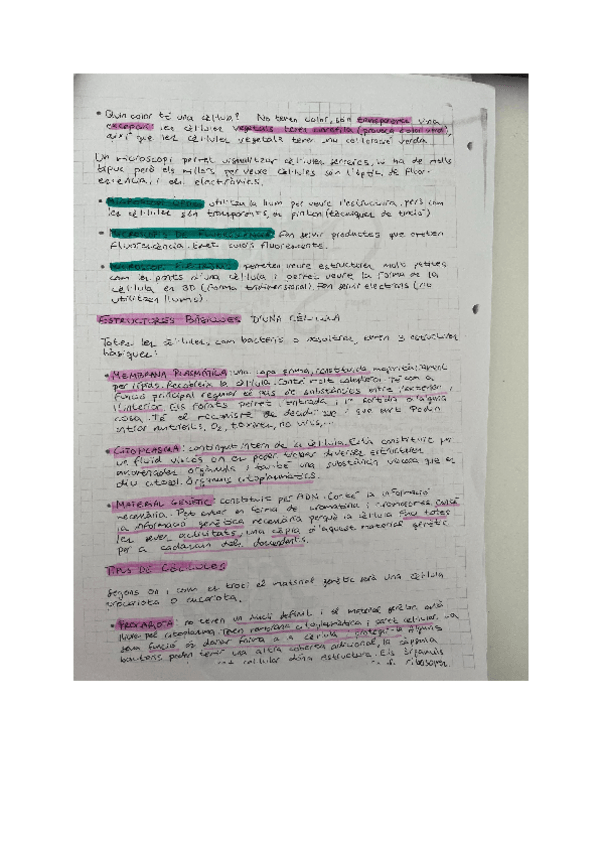 • Quin color té una cèl·lula? No tenen color, són transparents. Una
excepció: les cèl·lules vegetals tenen clorofil·la (provoca color verd),
així que les cèl·lules vegetals tenen una coloració verda.
Un microscopi permet visualitzar cèl·lules senceres, n'hi ha de molts
tipus però els millors per veure cèl·lules són l'òptic, de fluor-
escència, i els electrònics.
• Microscopi òptic: utilitza la llum per veure l'estructura, però com
les cèl·lules són transparents, es pinten (tècniques de tinció)
• Microscopi de fluorescència: Fan servir productes que emeten
fluorescència. Emet colors fluorescents.
• Microscopi electrònic: permeten veure estructures molt petites,
com les parts d'una cèl·lula i permet veure la forma de la
cèl·lula en 3D (forma tridimensional). Fan servir electrons (no
utilitzen llums).
ESTRUCTURES BÀSIQUES D'UNA CÈL·LULA
Totes les cèl·lules, com bacteris o nosaltres, tenen 3 estructures
bàsiques:
• MEMBRANA PLASMÀTICA: una capa prima, constituïda majoritàriament
per lípids. Recobreix la cèl·lula. Té com a
funció principal regular el pas de substàncies entre l'exterior i
l'interior. Els forats entrada i sortida d'alguna
cosa. Té el de decidir què i què surt. Poden
entrar nutrients, O2, toxines, no virus,...
• CITOPLASMA: contingut intern de la cèl·lula. Està constituït per
un fluid viscós on es poden trobar diverses estructures
anomenades orgànuls i també una substància viscosa que es
diu citosol. Orgànuls citoplasmàtics.
• MATERIAL GENÈTIC: constituït per ADN. Conté la informació
necessària. Pot estar en forma de cromatina i cromosomes.
la informació genètica necessària perquè la cèl·lula faci totes
les seves activitats, una còpia d'aquest material genètic
per a cadascun dels descendents.
TIPUS DE CÈL·LULES
Segons on i com es trobi el material genètic serà una cèl·lula
procariota o eucariota.
• PROCARIOTA: no tenen un nucli definit i el material genètic està
lliure pel citoplasma. Tenen membrana citoplasmàtica i paret cel·lular,
funció és donar forma a la cèl·lula i protegir-la. Alguns
bacteris poden tenir una altra coberta addicional, la càpsula.
cel·lular dóna estructura. Els orgànuls
ribosomes